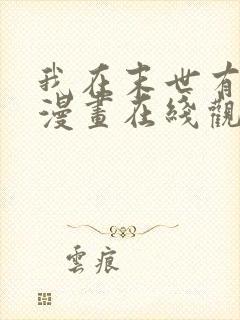 我在末世有
漫畫在綫觀
雲痕